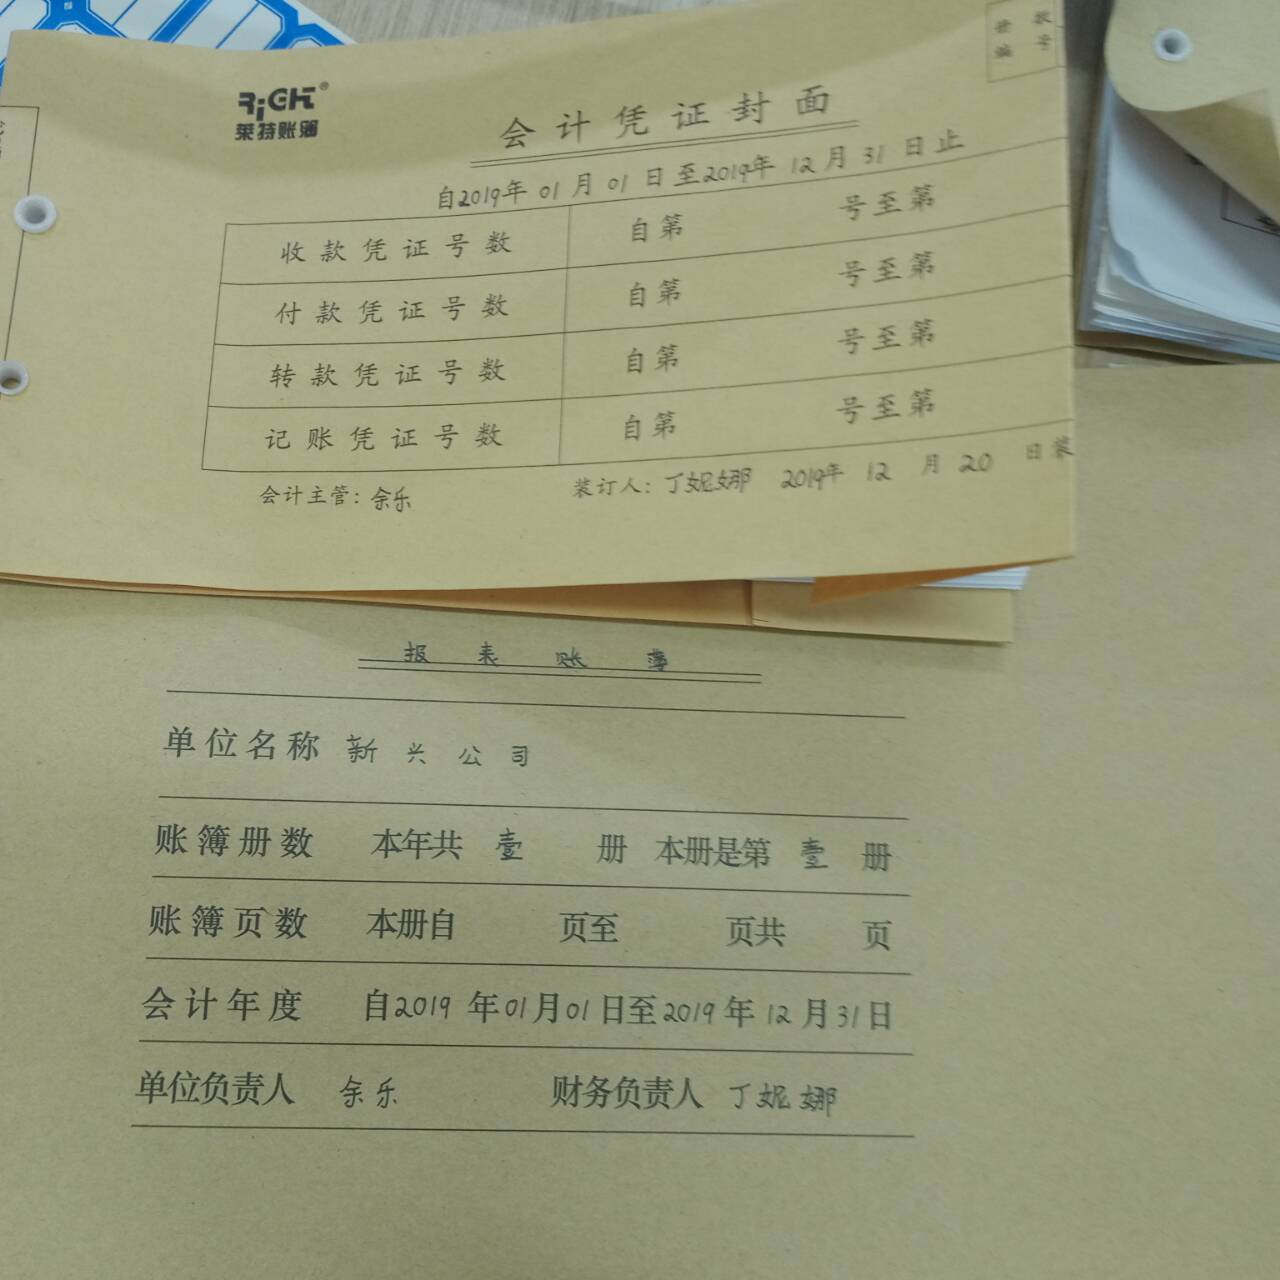 RiGHT®
莱特账簿
会计凭证封面
自2019年 01 月 01 日至2019年 12 月 31 日止
收款凭证号数 自第 号至第
付款凭证号数 自第 号至第
转款凭证号数 自第 号至第
记账凭证号数 自第 号至第
会计主管：余乐 装订人：丁妮娜 2019年 12 月 20 日装
报表账薄
单位名称 新兴公司
账簿册数 本年共 壹 册 本册是第 壹 册
账簿页数 本册自 页至 页共 页
会计年度 自2019年01月01日至2019年12月31日
单位负责人 余乐 财务负责人 丁妮娜